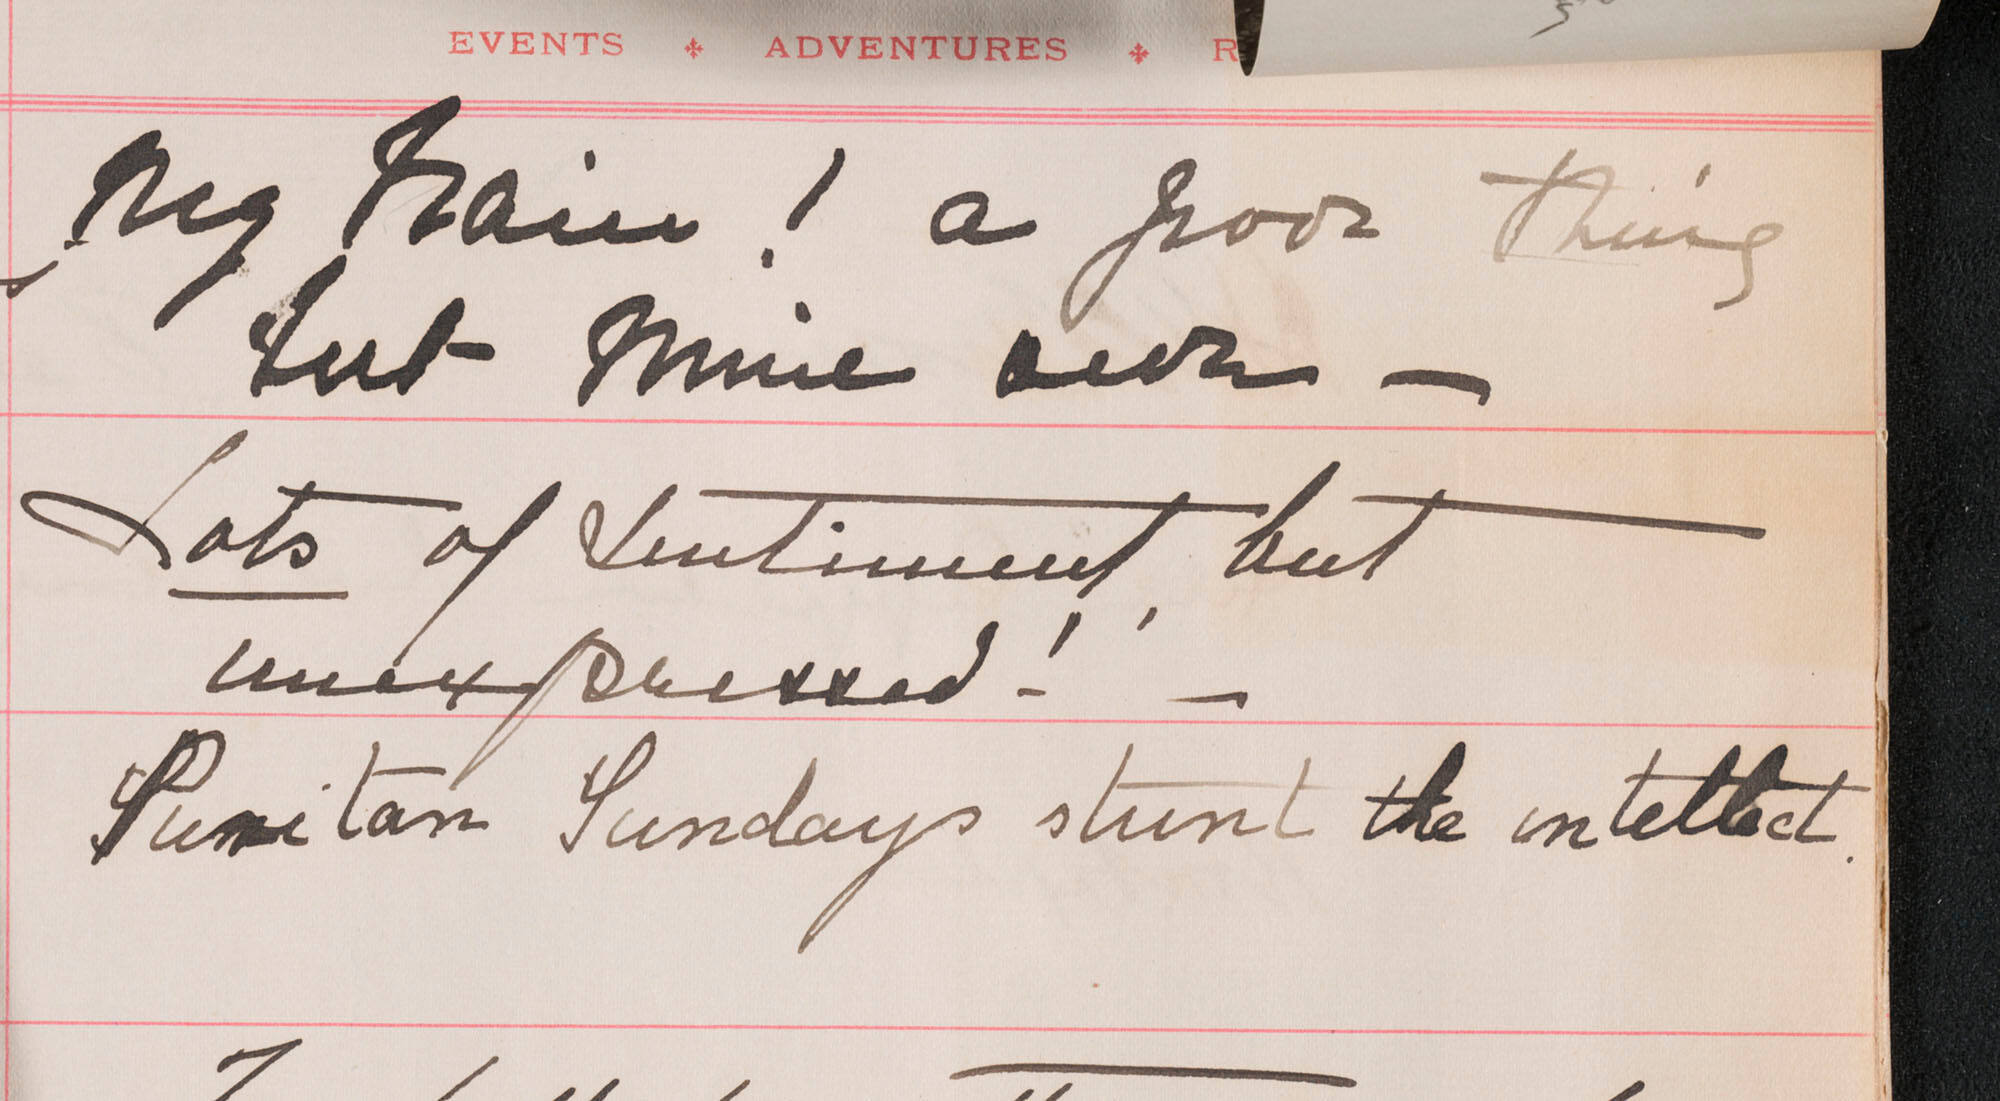 EVENTS ADVENTURES R
My brain! a poor thing
but mine own —
Lots of sentiment but
unexpressed! —
Puritan Sundays stunt the intellect.